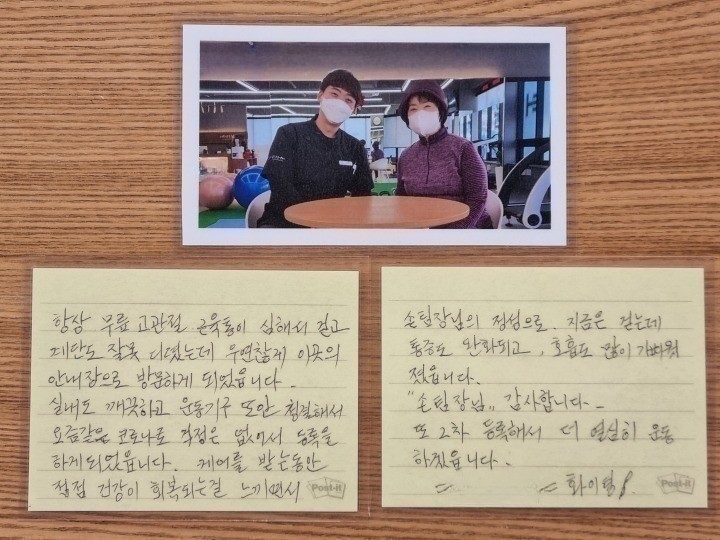 항상 무릎 고관절 근육통이 심해서 걷고
계단도 잘못 디뎠는데 우연찮게 이곳의
안내장으로 방문하게 되었읍니다.
실내도 깨끗하고 운동기구 또안 청결해서
요즘같은 코로나로 걱정은 없어서 등록을
하게되었읍니다. 케어를 받는동안
점점 건강이 회복되는걸 느끼면서
Post-it
손팀장님의 정성으로. 지금은 걷는데
통증도 완화되고, 호흡도 많이 가벼워
졌읍니다.
"손팀장님" 감사합니다-
또 2차 등록해서 더 열심히 운동
하겠읍니다.
화이팅!
Post-it